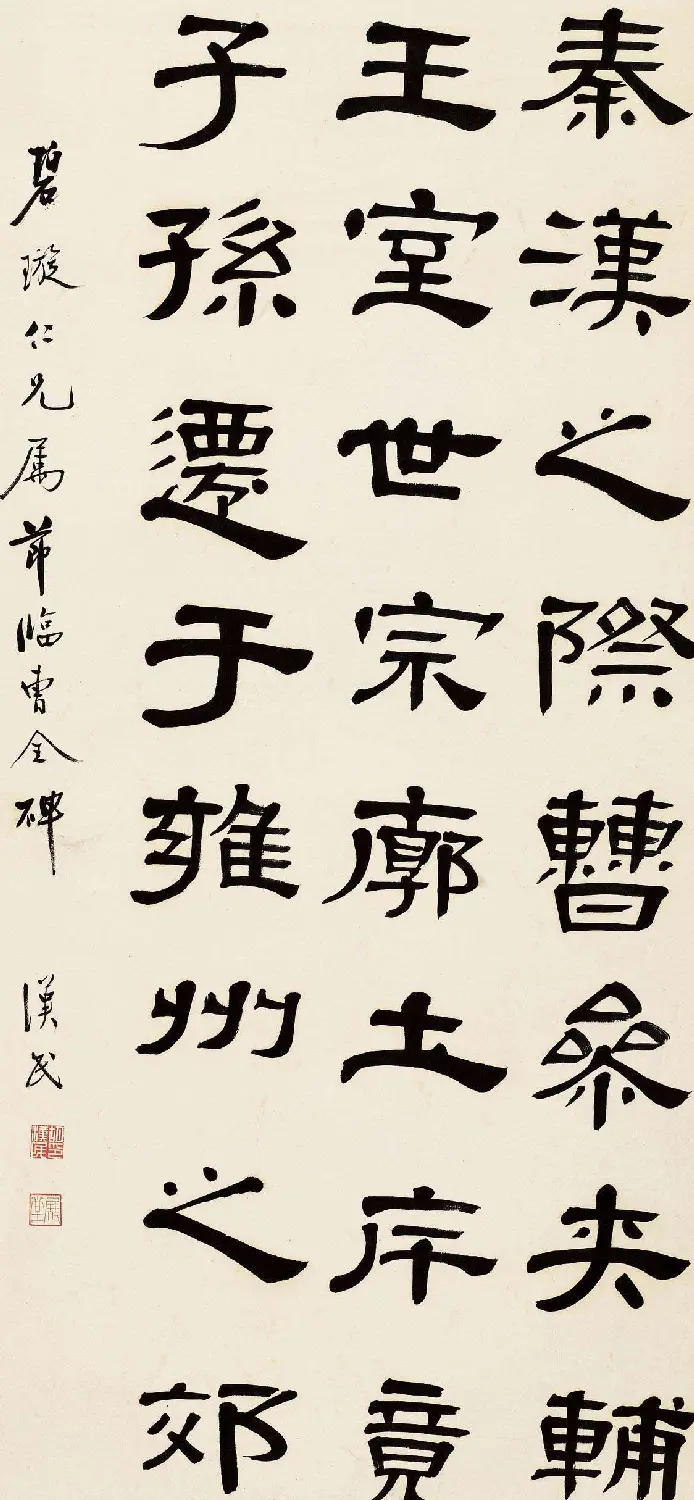 秦漢之際曹參夾輔
王室世宗廓土斥竟
子孫遷于雍州之郊
碧璇仁兄属節臨曹全碑
漢民